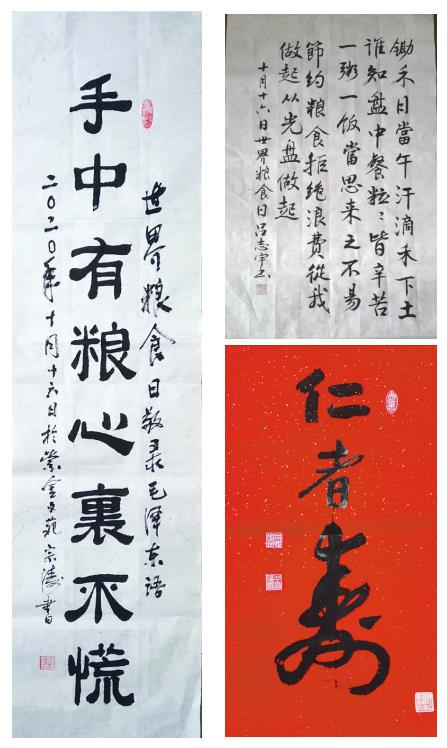 世界粮食日敬录毛泽东语
手中有粮心裏不慌
二〇二〇年十月十六日於紫金文苑宗涛書
鋤禾日當午汗滴禾下土
谁知盘中餐粒々皆辛苦
一粥一饭當思来之不易
節约粮食拒绝浪費從我
做起从光盘做起
十月十六日世界粮食日吕志宇书
仁者壽